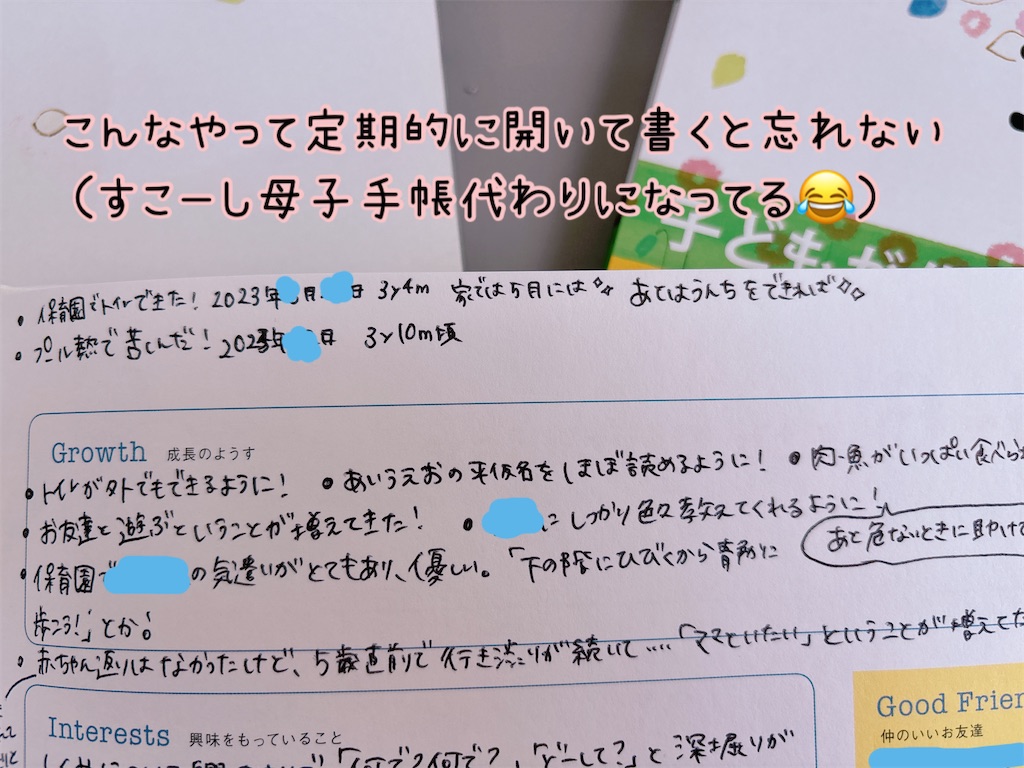 こんなやって定期的に開いて書くと忘れない
(すこーし母子手帳代わりになってる😂)
子ども
・保育園でトイレできた! 2023年 月 日 3y4m 家では5月には あとはうんちをできれば
・プール熱で苦しんだ! 2023年 日 3y10m頃
Growth 成長のようす
・トイレが外でもできるように! ・あいうえおの平仮名をほぼ読めるように! ・肉・魚がいっぱい食べられ
・お友達と遊ぶということが増えてきた! ・ にしっかり色々教えてくれるように!
あと危ないときに助けて
・保育園で の気遣いがとてもあり、優しい。「下の階にひびくから静かに
歩こう!」とか!
・赤ちゃん返りはなかったけど、5歳直前で行き渋りが続いて……「ママといたい」ということが増えてた
Interests 興味をもっていること
「何で?何で?」,「どーして?」と深堀りが
Good Frien
仲のいいお友達